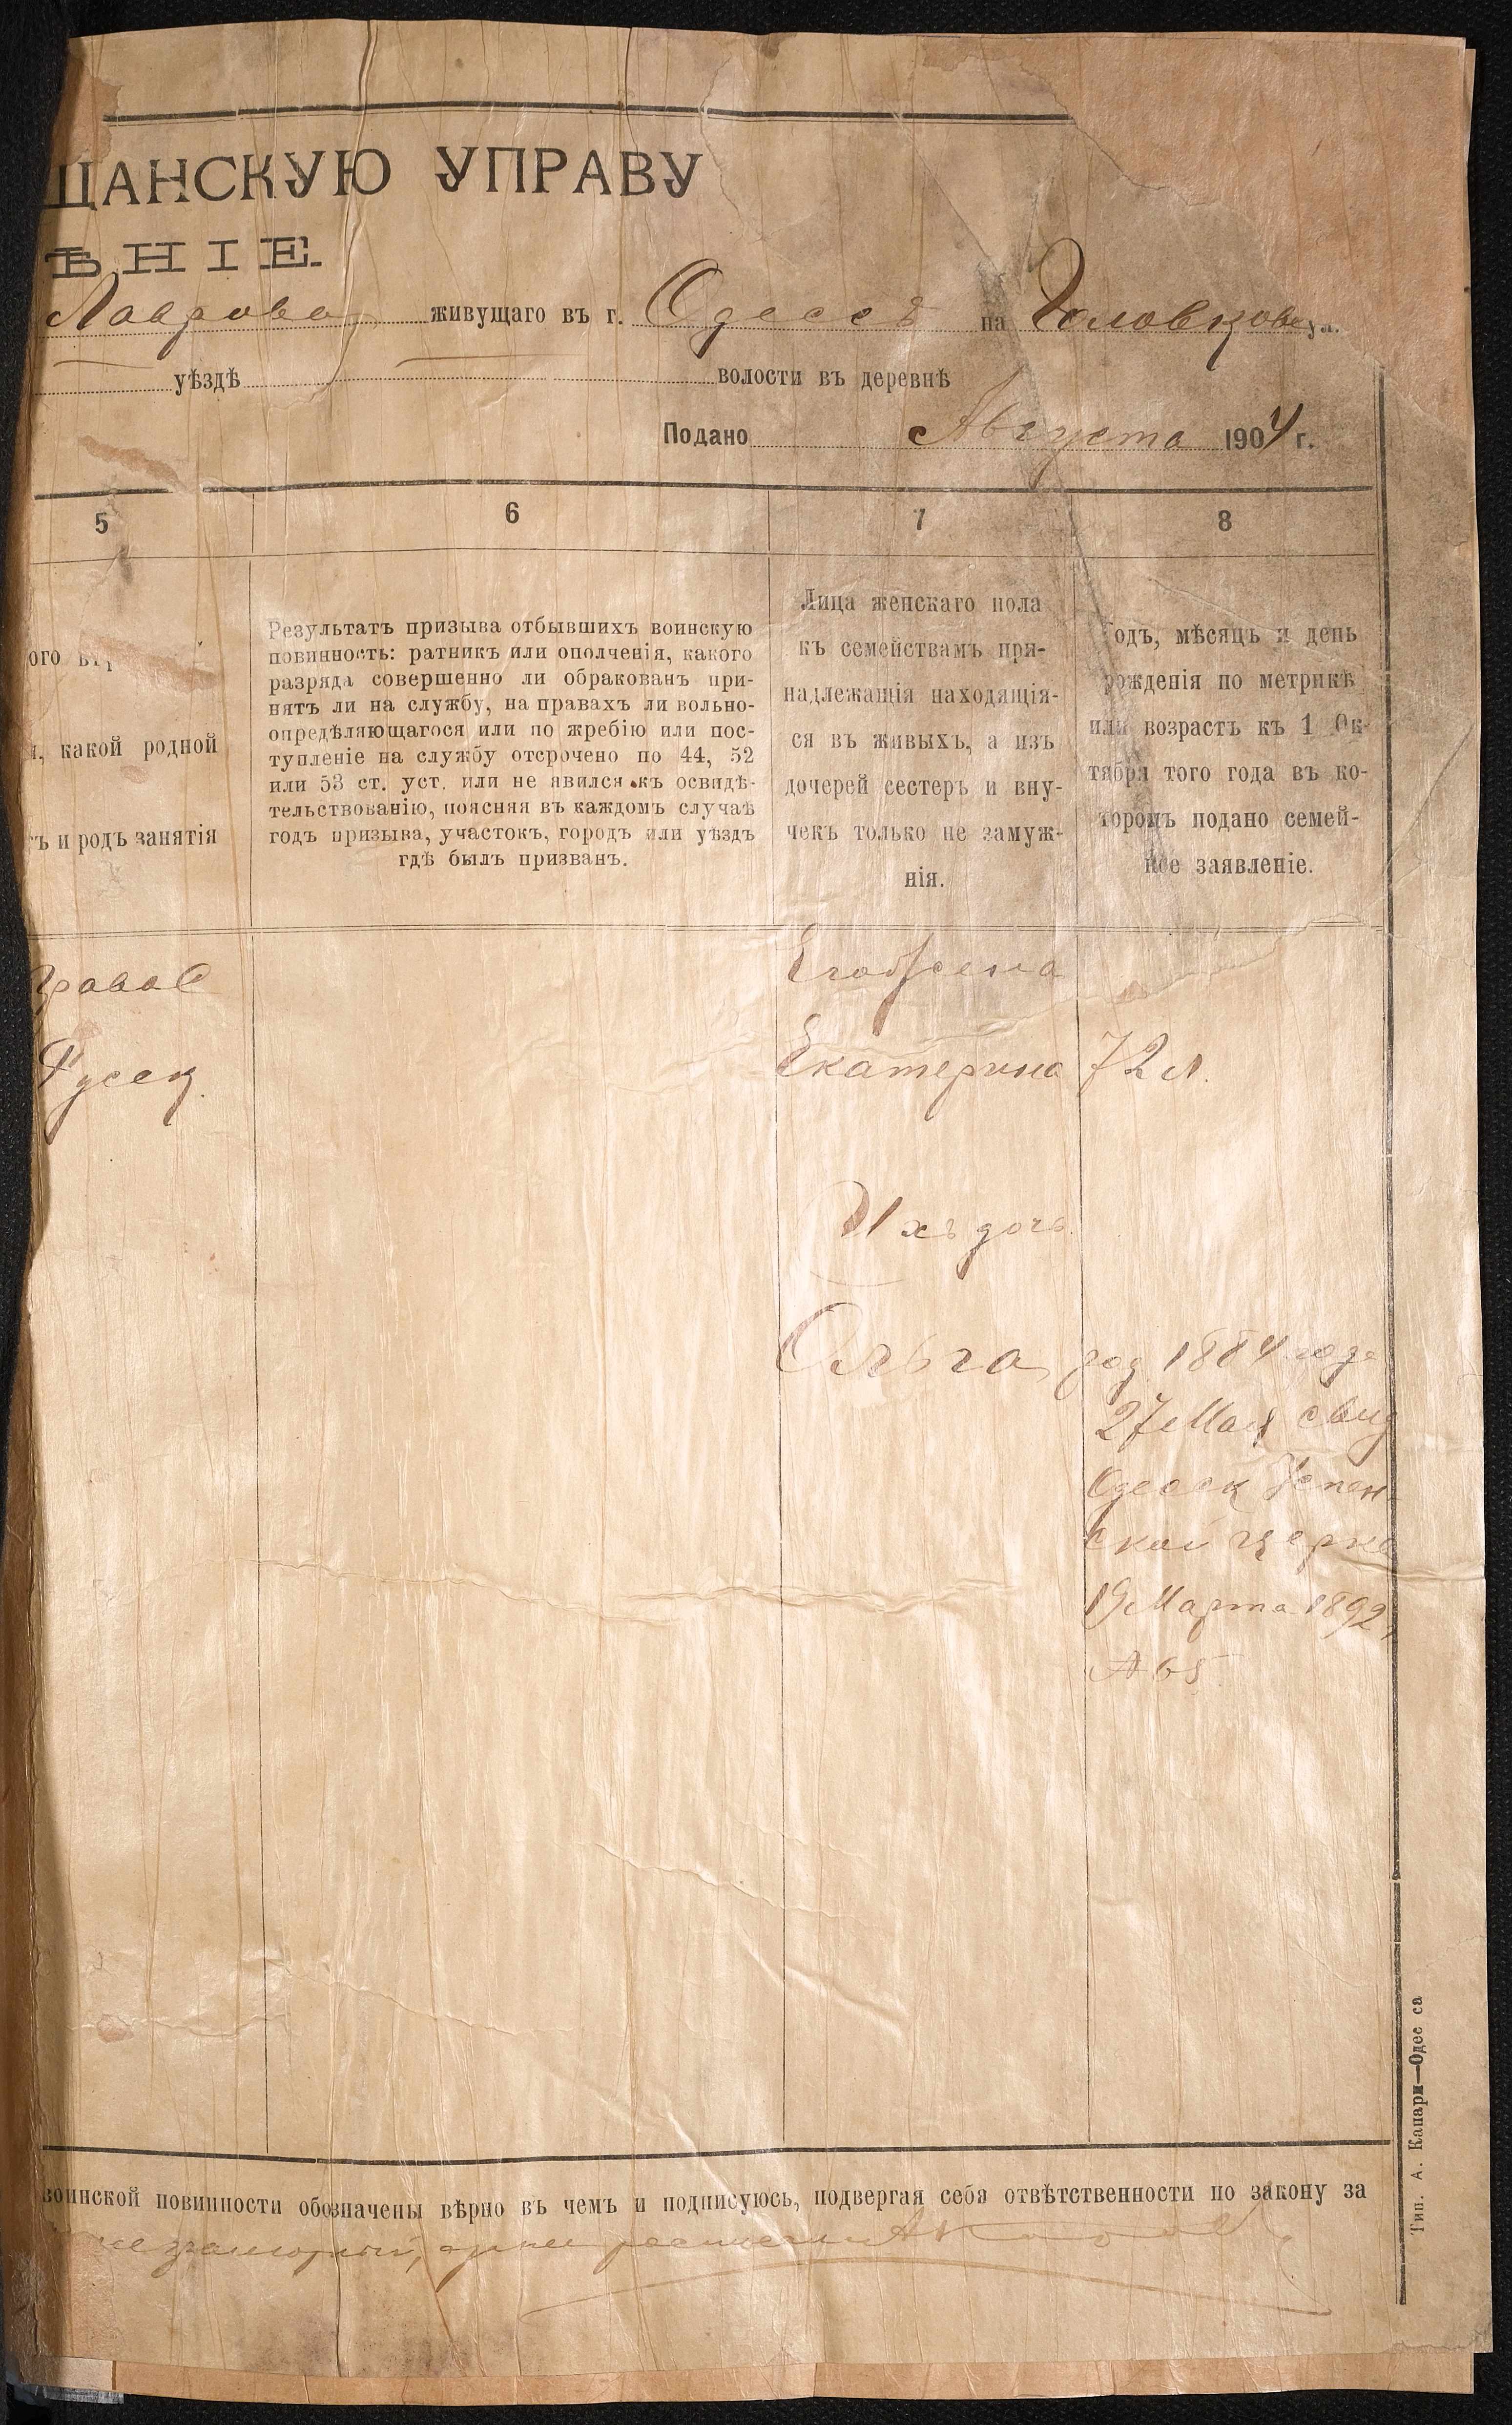 ЩАНСКУЮ УПРАВУ
ѢНІЕ.
Лаврова живущаго въ г. Одессѣ на Головков ул.
уѣздѣ волости въ деревнѣ
Подано Августа 1904 г.
5 6 7 8
ого
, какой родной
ъ и родъ занятія
Результатъ призыва отбывшихъ воинскую
повинность: ратникъ или ополченія, какого
разряда совершенно ли обракованъ при-
нятъ ли на службу, на правахъ ли вольно-
опредѣляющагося или по жребію или пос-
тупленіе на службу отсрочено по 44, 52
или 53 ст. уст. или не явился къ освидѣ-
тельствованію, поясняя въ каждомъ случаѣ
годъ призыва, участокъ, городъ или уѣздъ
гдѣ былъ призванъ.
Лица женскаго пола
къ семействамъ при-
надлежащія находящія-
ся въ живыхъ, а изъ
дочерей сестеръ и вну-
чекъ только не замуж-
нія.
Годъ, мѣсяцъ и день
рожденія по метрикѣ
или возрастъ къ 1 Ок-
тября того года въ ко-
торомъ подано семей-
ное заявленіе.
Правос
Русск.
Его жена
Екатерина 72 л.
Ихъ дочь
Ольга род 1884 года
27 Мая свид
Одесск Успен-
ской церкв
19 Марта 1892
№ 65
воинской повинности обозначены вѣрно въ чемъ и подписуюсь, подвергая себя отвѣтственности по закону за
Тип. А. Капари—Одесса